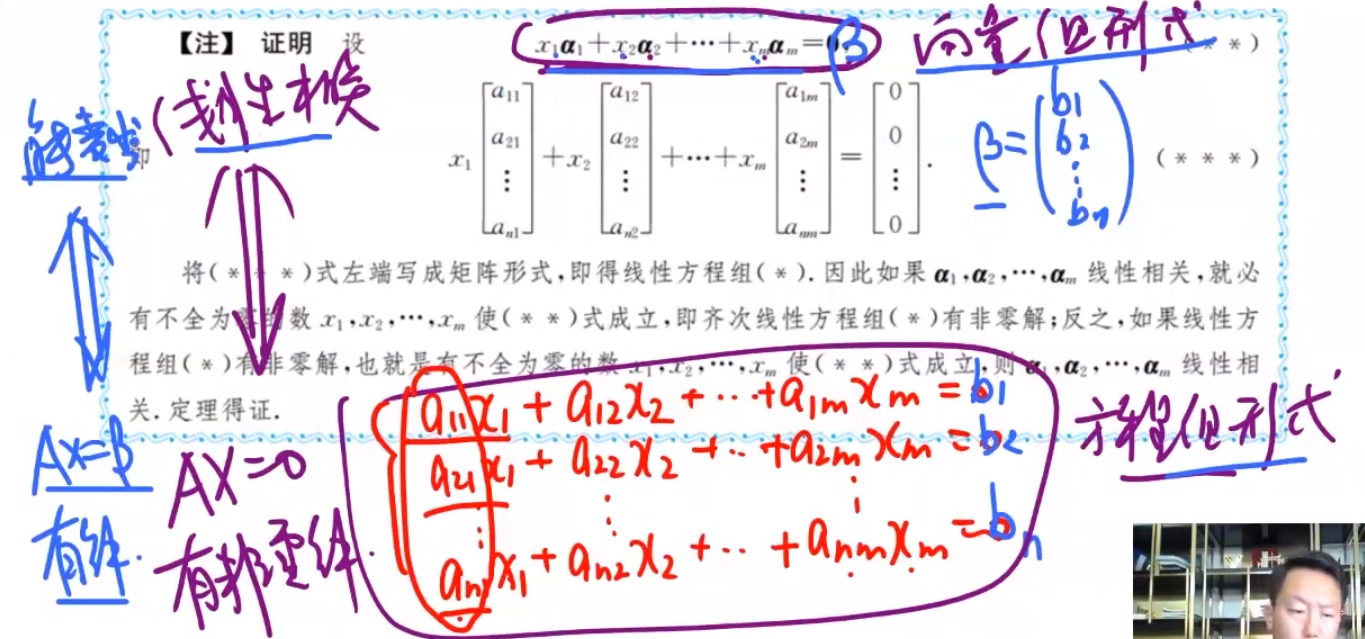 【注】 证明 设 x₁α₁+x₂α₂+⋯+xₘαₘ=β 向量组形式 (* *)
线性相关
能表出
即 x₁ [a₁₁ a₂₁ ⋮ aₙ₁] + x₂ [a₁₂ a₂₂ ⋮ aₙ₂] +⋯+ xₘ [a₁ₘ a₂ₘ ⋮ aₙₘ] = [0 0 ⋮ 0] . β=(b₁ b₂ ⋮ bₙ) (* * *)
将(* * *)式左端写成矩阵形式,即得线性方程组(*).因此如果 α₁,α₂,⋯,αₘ 线性相关,就必
有不全为零的数 x₁,x₂,⋯,xₘ 使(* *)式成立,即齐次线性方程组(*)有非零解;反之,如果线性方
程组(*)有非零解,也就是有不全为零的数 x₁,x₂,⋯,xₘ 使(* *)式成立,则 α₁,α₂,⋯,αₘ 线性相
关.定理得证.
a₁₁x₁ + a₁₂x₂ + ⋯ + a₁ₘxₘ = b₁
a₂₁x₁ + a₂₂x₂ + ⋯ + a₂ₘxₘ = b₂
⋮ ⋮ ⋮
aₙ₁x₁ + aₙ₂x₂ + ⋯ + aₙₘxₘ = bₙ
方程组形式
AX=β
有解.
AX=0
有非零解.